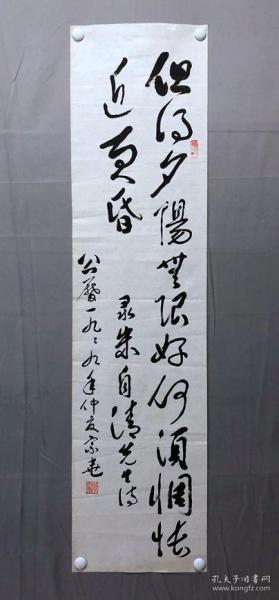 但得夕陽無限好何須惆悵
近黄昏
录朱自清先生诗
公曆一九八九年仲夏
孔夫子旧书网